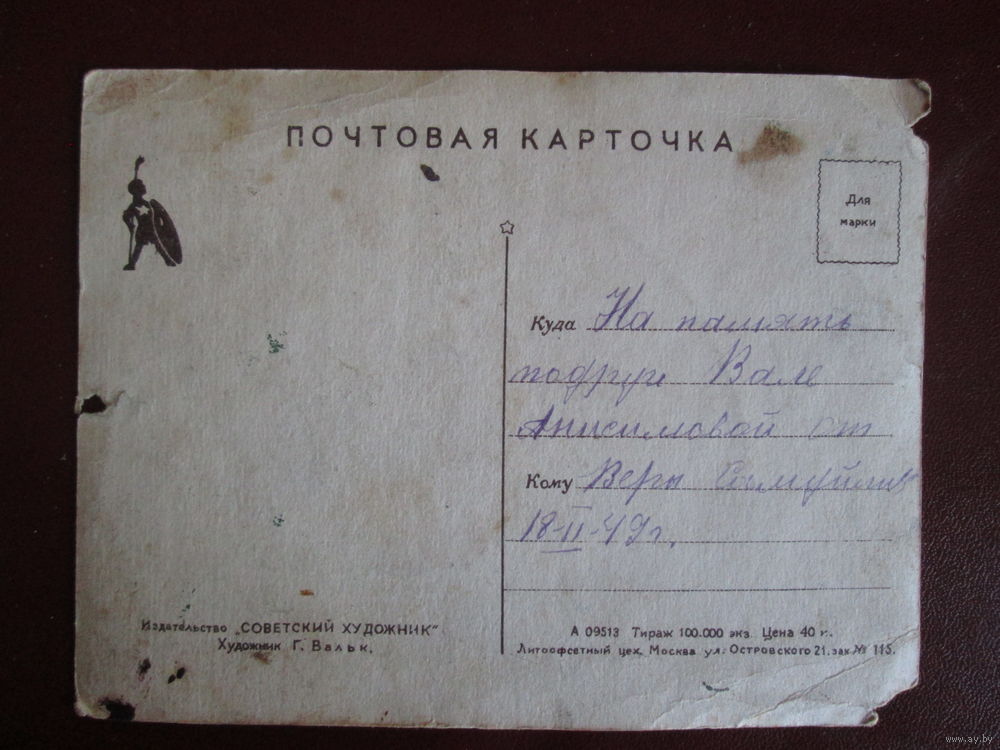 ПОЧТОВАЯ КАРТОЧКА
Для
марки
Куда На память
подруге Вале
Анисимовой от
Кому Веры
18-II-49г.
Издательство „СОВЕТСКИЙ ХУДОЖНИК“
Художник Г. Вальк.
А 09513 Тираж 100.000 экз. Цена 40 к.
Литоофсетный цех, Москва ул. Островского 21. зак № 115.
www.ay.by